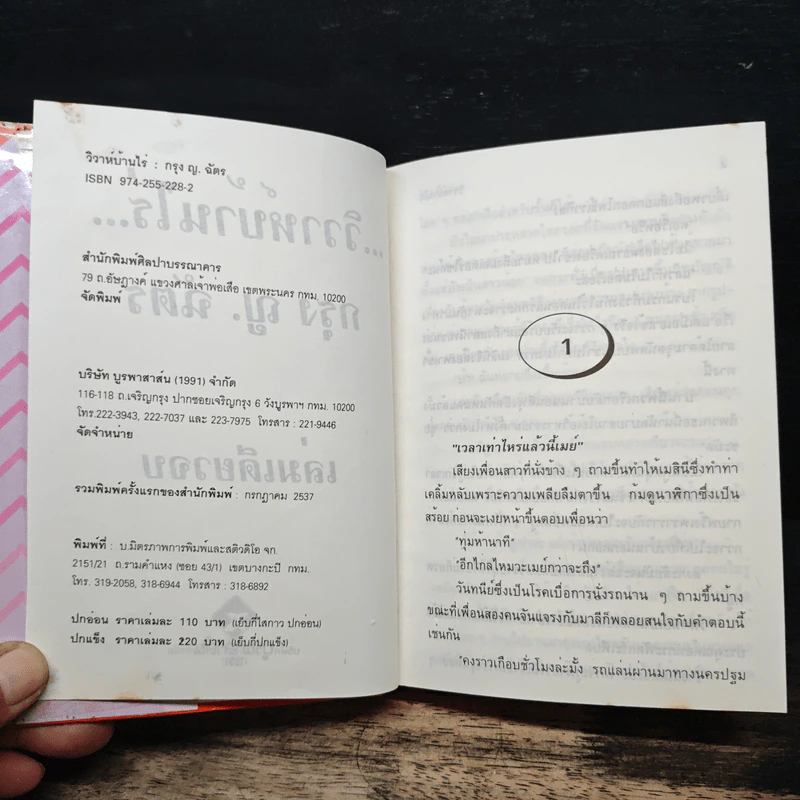 วิวาห์บ้านไร่ : กรุง ญ. ฉัตร
ISBN 974-255-228-2
สำนักพิมพ์ศิลปาบรรณาคาร
79 ถ.อัษฎางค์ แขวงศาลเจ้าพ่อเสือ เขตพระนคร กทม. 10200
จัดพิมพ์
บริษัท บูรพาสาส์น (1991) จำกัด
116-118 ถ.เจริญกรุง ปากซอยเจริญกรุง 6 วังบูรพาฯ กทม. 10200
โทร.222-3943, 222-7037 และ 223-7975 โทรสาร : 221-9446
จัดจำหน่าย
รวมพิมพ์ครั้งแรกของสำนักพิมพ์ : กรกฎาคม 2537
พิมพ์ที่ : บ.มิตรภาพการพิมพ์และสติวดิโอ จก.
2151/21 ถ.รามคำแหง (ซอย 43/1) เขตบางกะปิ กทม.
โทร. 319-2058, 318-6944 โทรสาร : 318-6892
ปกอ่อน ราคาเล่มละ 110 บาท (เย็บกี่ไสกาว ปกอ่อน)
ปกแข็ง ราคาเล่มละ 220 บาท (เย็บกี่ปกแข็ง)
1
"เวลาเท่าไหร่แล้วนี้เมย์"
เสียงเพื่อนสาวที่นั่งข้าง ๆ ถามขึ้นทำให้เมสินีซึ่งทำท่า
เคลิ้มหลับเพราะความเพลียลืมตาขึ้น ก้มดูนาฬิกาซึ่งเป็น
สร้อย ก่อนจะเงยหน้าขึ้นตอบเพื่อนว่า
"ทุ่มห้านาที"
"อีกไกลไหมวะเมย์กว่าจะถึง"
วันทนีย์ซึ่งเป็นโรคเบื่อการนั่งรถนาน ๆ ถามขึ้นบ้าง
ขณะที่เพื่อนสองคนจันแจงรกับมาลีก็พลอยสนใจกับคำตอบนี้
เช่นกัน
"คงราวเกือบชั่วโมงล่ะมั้ง รถแล่นผ่านมาทางนครปฐม